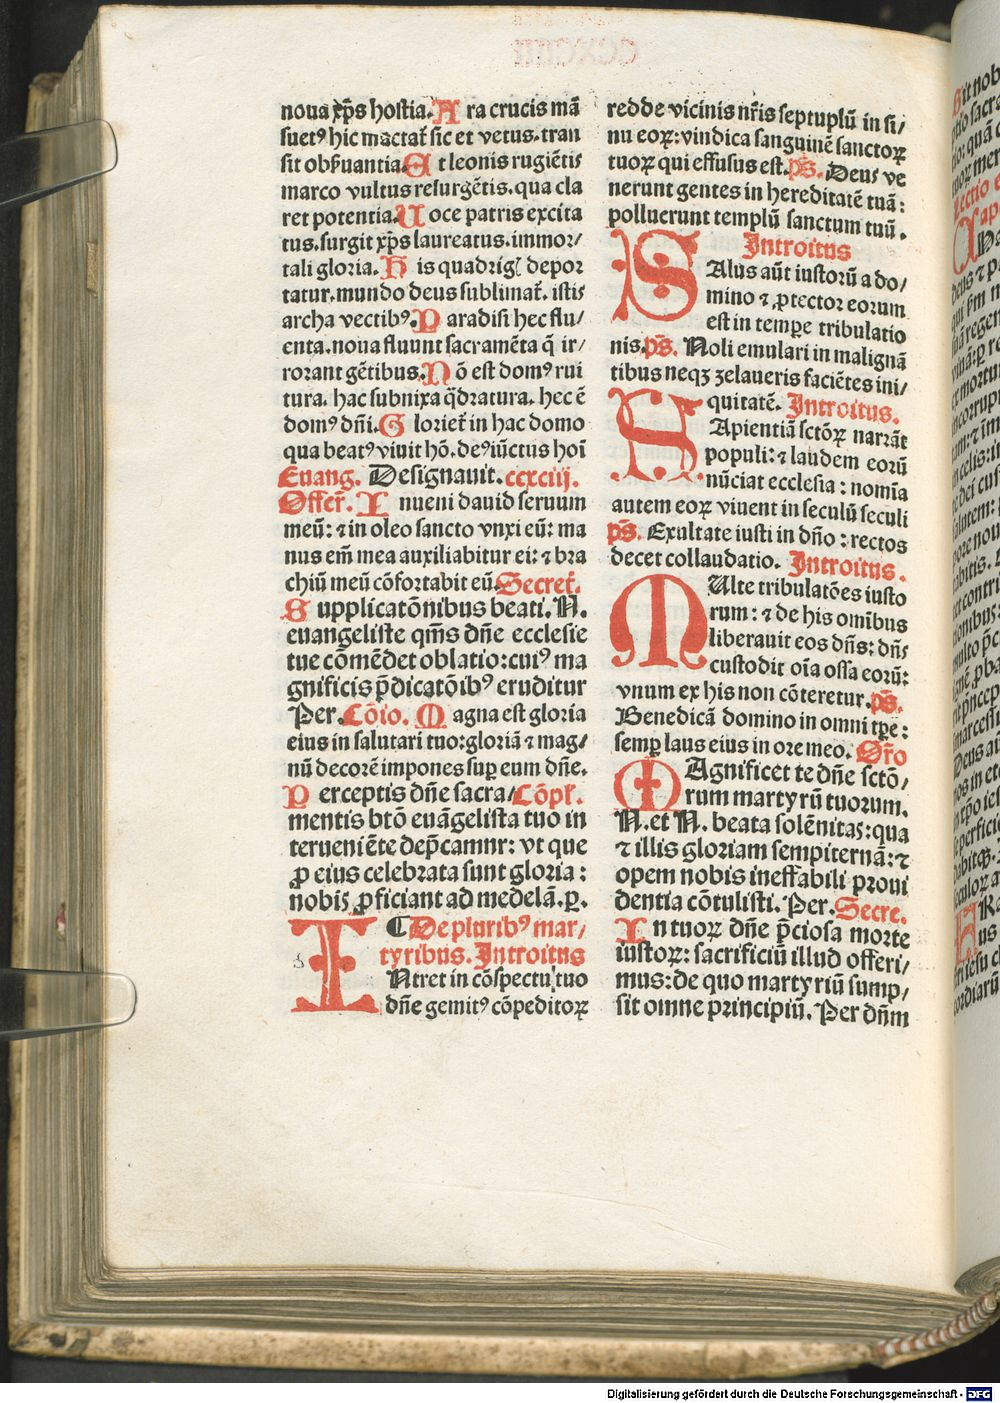 noua xp̄s hostia. A ra crucis mā
suetꝰ hic mactat̄ sic et vetus. tran
sit obẜuantia. E t leonis rugiētis
marco vultus resurgētis. qua cla
ret potentia. U oce patris excita
tus. surgit xp̄s laureatus. immor/
tali gloria. H is quadrigꝭ depor
tatur. mundo deus sublimat̄. istis
archa vectibꝰ. P aradisi hec flu/
enta. noua fluunt sacramēta q̄ ir/
rorant gētibus. N ō est domꝰ rui
tura. hac subnixa q̄dratura. hec ē
domꝰ dn̄i. G loriet̄ in hac domo
qua beatꝰ viuit hō. deꝰ iūctus hoī
Euang. Designauit. ccxciij.
Offer̄. I nueni dauid seruum
meū: ⁊ in oleo sancto vnxi eū: ma
nus em̄ mea auxiliabitur ei: ⁊ bra
chiū meū cōfortabit eū. Secret̄.
S upplicatōnibus beati. N.
euangeliste qm̄s dn̄e ecclesie
tue cōmēdet oblatio: cuiꝰ ma
gnificis p̄dicatōibꝰ eruditur
Per. Cōio. M agna est gloria
eius in salutari tuo: gloriā ⁊ mag/
nū decorē impones sup̱ eum dn̄e.
P erceptis dn̄e sacra/ Cōpl̄.
mentis btō euāgelista tuo in
terueniēte dep̄camnr: vt que
ꝓ eius celebrata sunt gloria:
nobis ꝓficiant ad medelā. p̱.
C De pluribꝰ mar/
tyribus. Introitus
I Ntret in cōspectu tuo
dn̄e gemitꝰ cōpeditoꝝ
redde vicinis nr̄is septuplū in si/
nu eoꝝ: vindica sanguinē sanctoꝝ
tuoꝝ qui effusus est. ps̄. Deus ve
nerunt gentes in hereditatē tuā:
polluerunt templū sanctum tuū.
Introitus
S Alus aūt iustorū a do/
mino ⁊ ꝓtector eorum
est in temp̱e tribulatio
nis. ps̄. Noli emulari in malignā
tibus neqꝫ zelaueris faciētes ini/
quitatē. Introitus.
S Apientiā sctōꝝ narrāt
populi: ⁊ laudem eorū
nūciat ecclesia: nomīa
autem eoꝝ viuent in seculū seculi
ps̄. Exultate iusti in dn̄o: rectos
decet collaudatio. Introitus.
M Ulte tribulatōes iusto
rum: ⁊ de his omībus
liberauit eos dn̄s: dn̄s
custodit oīa ossa eorū:
vnum ex his non cōteretur. ps̄.
Benedicā domino in omni tp̱e:
semp̱ laus eius in ore meo. Or̄o
M Agnificet te dn̄e sctō/
rum martyrū tuorum.
N. et N. beata solēnitas: qua
⁊ illis gloriam sempiternā: ⁊
opem nobis ineffabili proui
dentia cōtulisti. Per. Secre.
I n tuoꝝ dn̄e p̄ciosa morte
iustoꝝ: sacrificiū illud offeri/
mus: de quo martyriū sump/
sit omne principiū. Per dn̄m
Digitalisierung gefördert durch die Deutsche Forschungsgemeinschaft - DFG